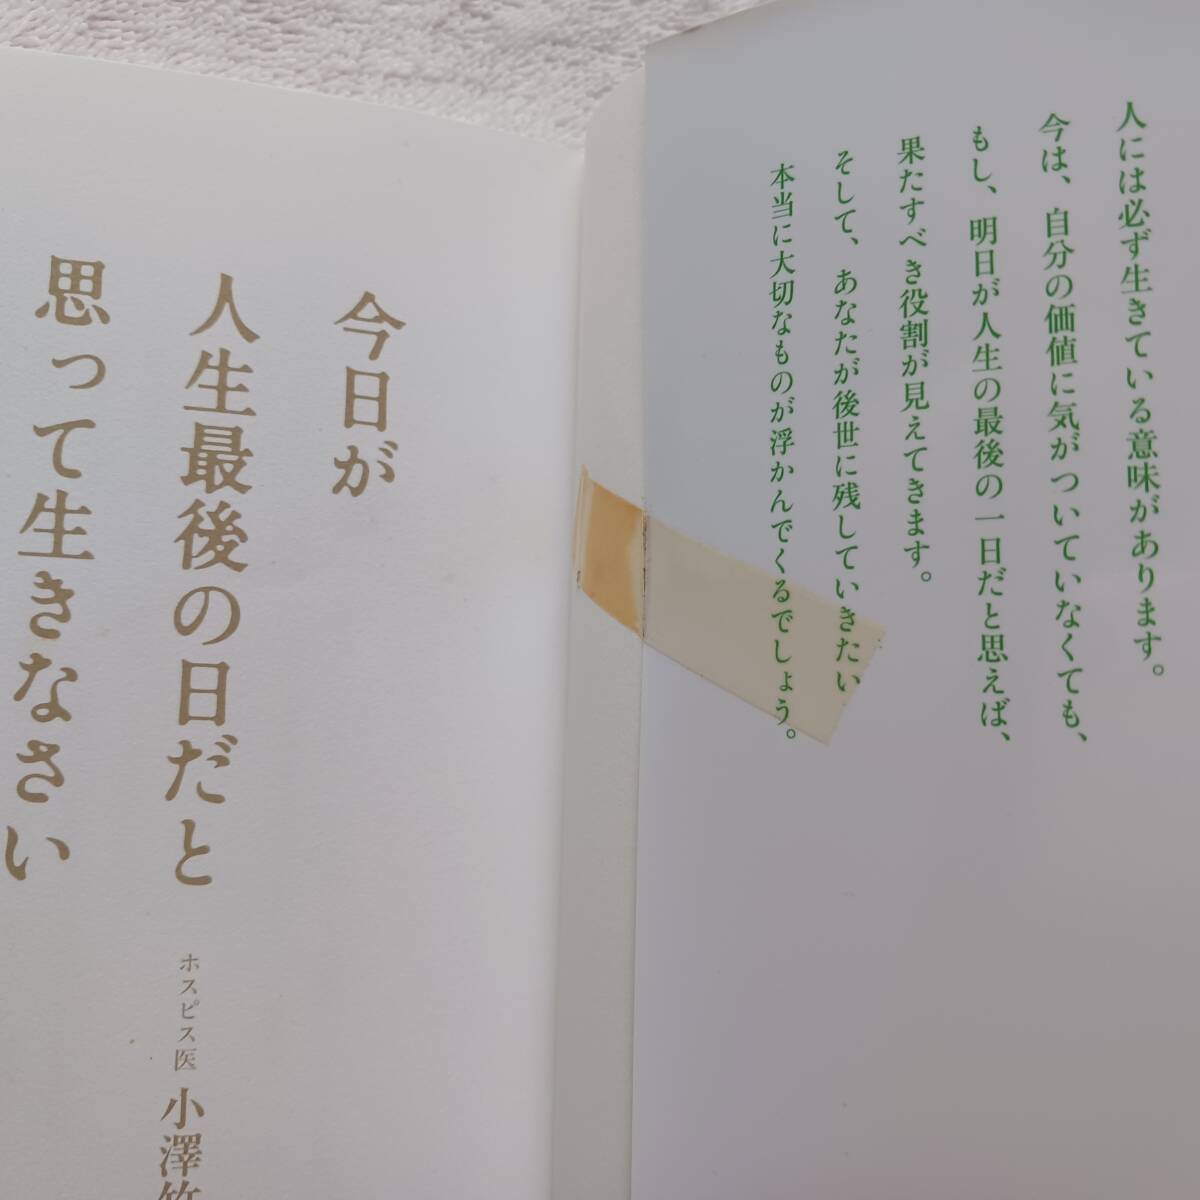 人には必ず生きている意味があります。
今は、自分の価値に気がついていなくても、
もし、明日が人生の最後の一日だと思えば、
果たすべき役割が見えてきます。
そして、あなたが後世に残していきたい
本当に大切なものが浮かんでくるでしょう。
今日が
人生最後の日だと
思って生きなさい
ホスピス医 小澤竹